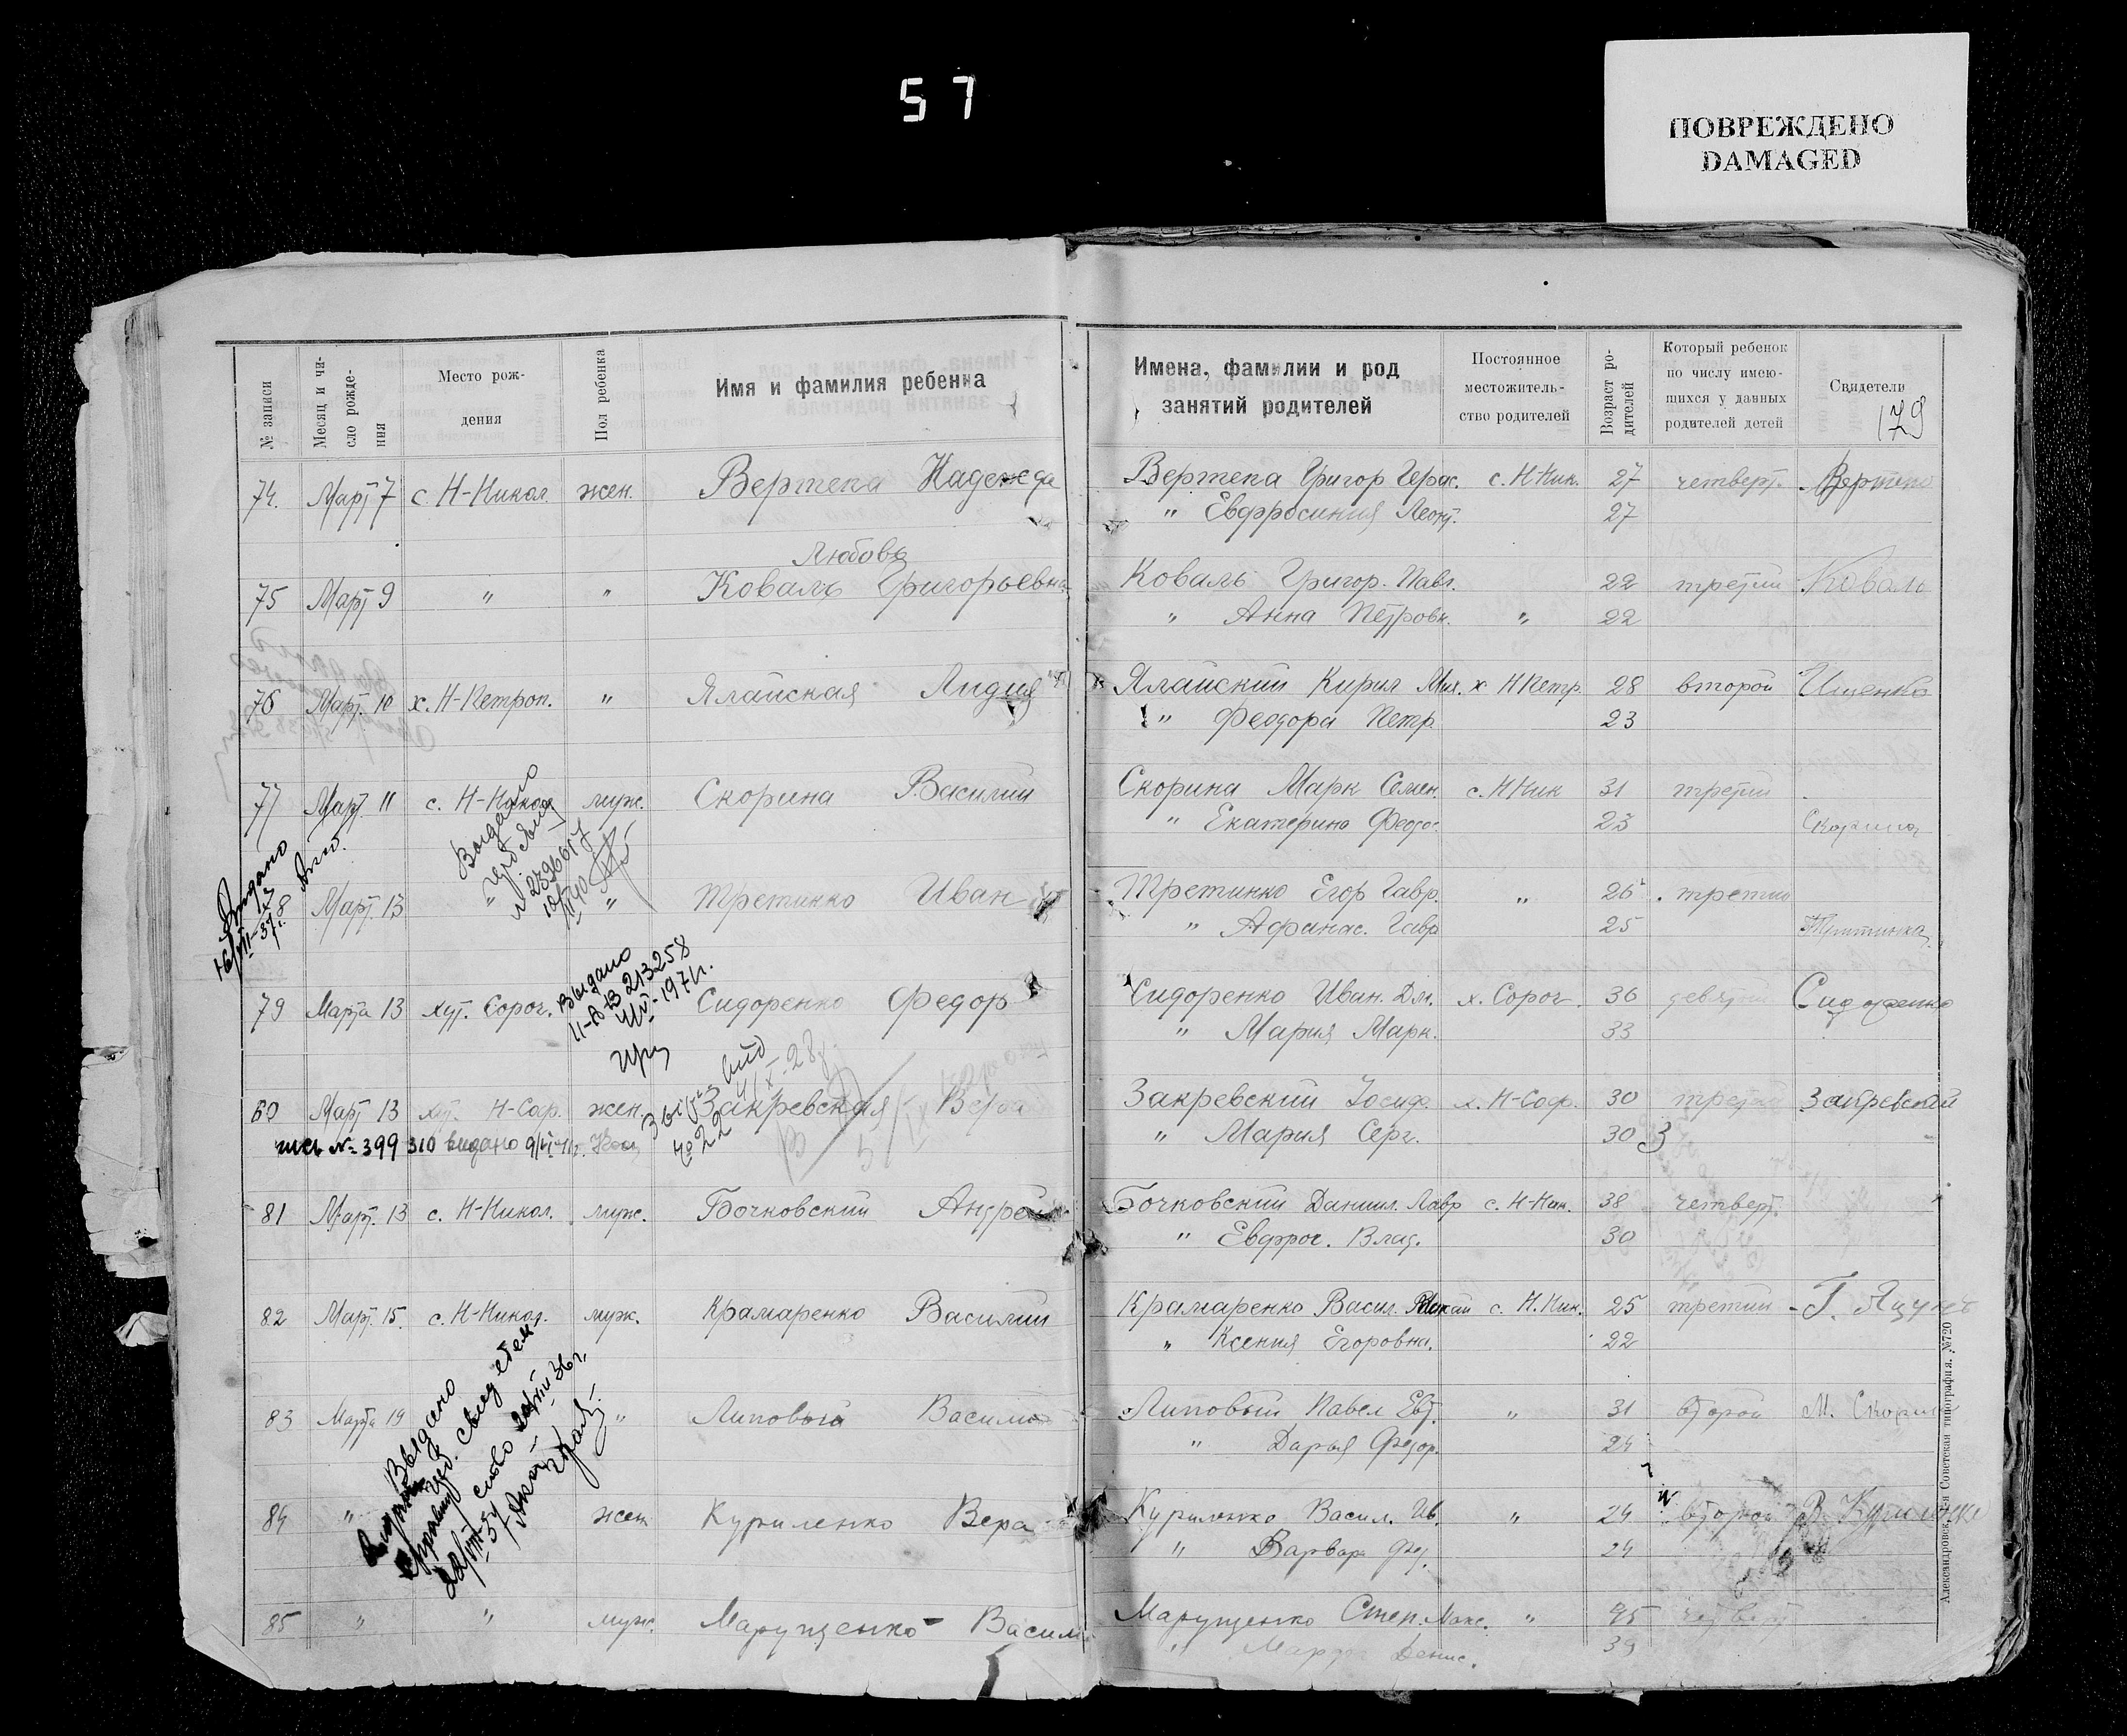 57
ПОВРЕЖДЕНО
DAMAGED
№ записи
Месяц и чи-
сло рожде-
ния
Место рож-
дения
Пол ребенка
Имя и фамилия ребенка
Имена, фамилии и род
занятий родителей
Постоянное
местожитель-
ство родителей
Возраст ро-
дителей
Который ребенок
по числу имею-
щихся у данных
родителей детей
Свидетели
179
74. Март 7 с. Н-Никол. жен. Вертепа Надежда Вертепа Григор Герас. с. Н-Ник. 27 четверт. Вертепа
" Евфросиния Леонт. 27
Любовь
75 Март 9 " " Коваль Григорьевна Коваль Григор. Павл. 22 третий Коваль
" Анна Петровн. " 22
76 Март. 10 х. Н-Петроп. " Ялайская Лидия Ялайский Кирил Мих. х Н Петр. 28 второй Ищенко
" Феодора Петр. 23
77 Март. 11 с. Н-Никол муж. Скорина Василий Скорина Марк Семен. с. Н Ник 31 третий
" Екатерина Федос. 23 Скорина
Выдано
№ 239667
Выдано
78 Март. 13 " " Третинко Иван Третинко Егор Гавр. " 26 третий
" Афанас. Гавр 25
79 Марта 13 хут. Сороч. Сидоренко Федор Сидоренко Иван. Дм. х. Сороч. 36 девятый Сидоренко
" Мария Марк. 33
Выдано
II-ЯВ 213258
1971г.
80 Март 13 хут. Н-Соф. жен. Закревская Вера Закревский Иосиф. х. Н-Соф. 30 третий Закревский
" Мария Серг. 30 3
№ 399310 видано
№ 22
81 Март. 13 с. Н-Никол. муж. Бочковский Андрей Бочковский Даниил. Лавр с. Н-Ник. 38 четверт.
" Евфрос. Влад. 30
82 Март. 15. с. Н-Никол. муж. Крамаренко Василий Крамаренко Васил. с. Н. Ник. 25 третий Г. Яцун
" Ксения Егоровна. 22
83 Марта 19 " Липовый Василий Липовый Павел Евт. " 31 второй М. Скорина
" Дарья Федор. 24
Выдано
84 " жен Куриленко Вера Куриленко Васил. Ив. " 24 второй В. Куриленко
" Варвар Фед. 24
85 " " муж. Марущенко Васил Марущенко Степ. Макс. " 45 четверт
" Марфа Денис. 39
Александровск. 1-я Советская типография. №720